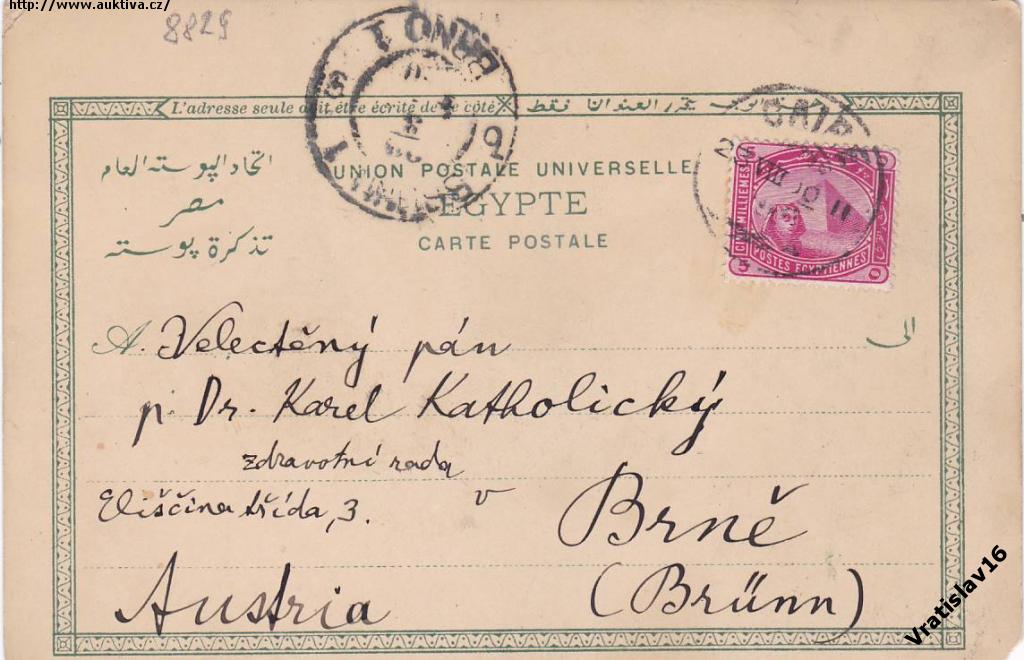 http://www.auktiva.cz/
8829
BRNO 1
L'adresse seule doit être écrite de ce côté
فقط
CAIRO
اتحاد البوسته العام
UNION POSTALE UNIVERSELLE
مصر
EGYPTE
تذكرة بوسته
CARTE POSTALE
CINQ MILLIEMES
POSTES EGYPTIENNES
5
A. Velectěný pán
الى
p. Dr. Karel Katholický
zdravotní rada
Eliščina třída, 3. v Brně
Austria (Brünn)
Vratislav16